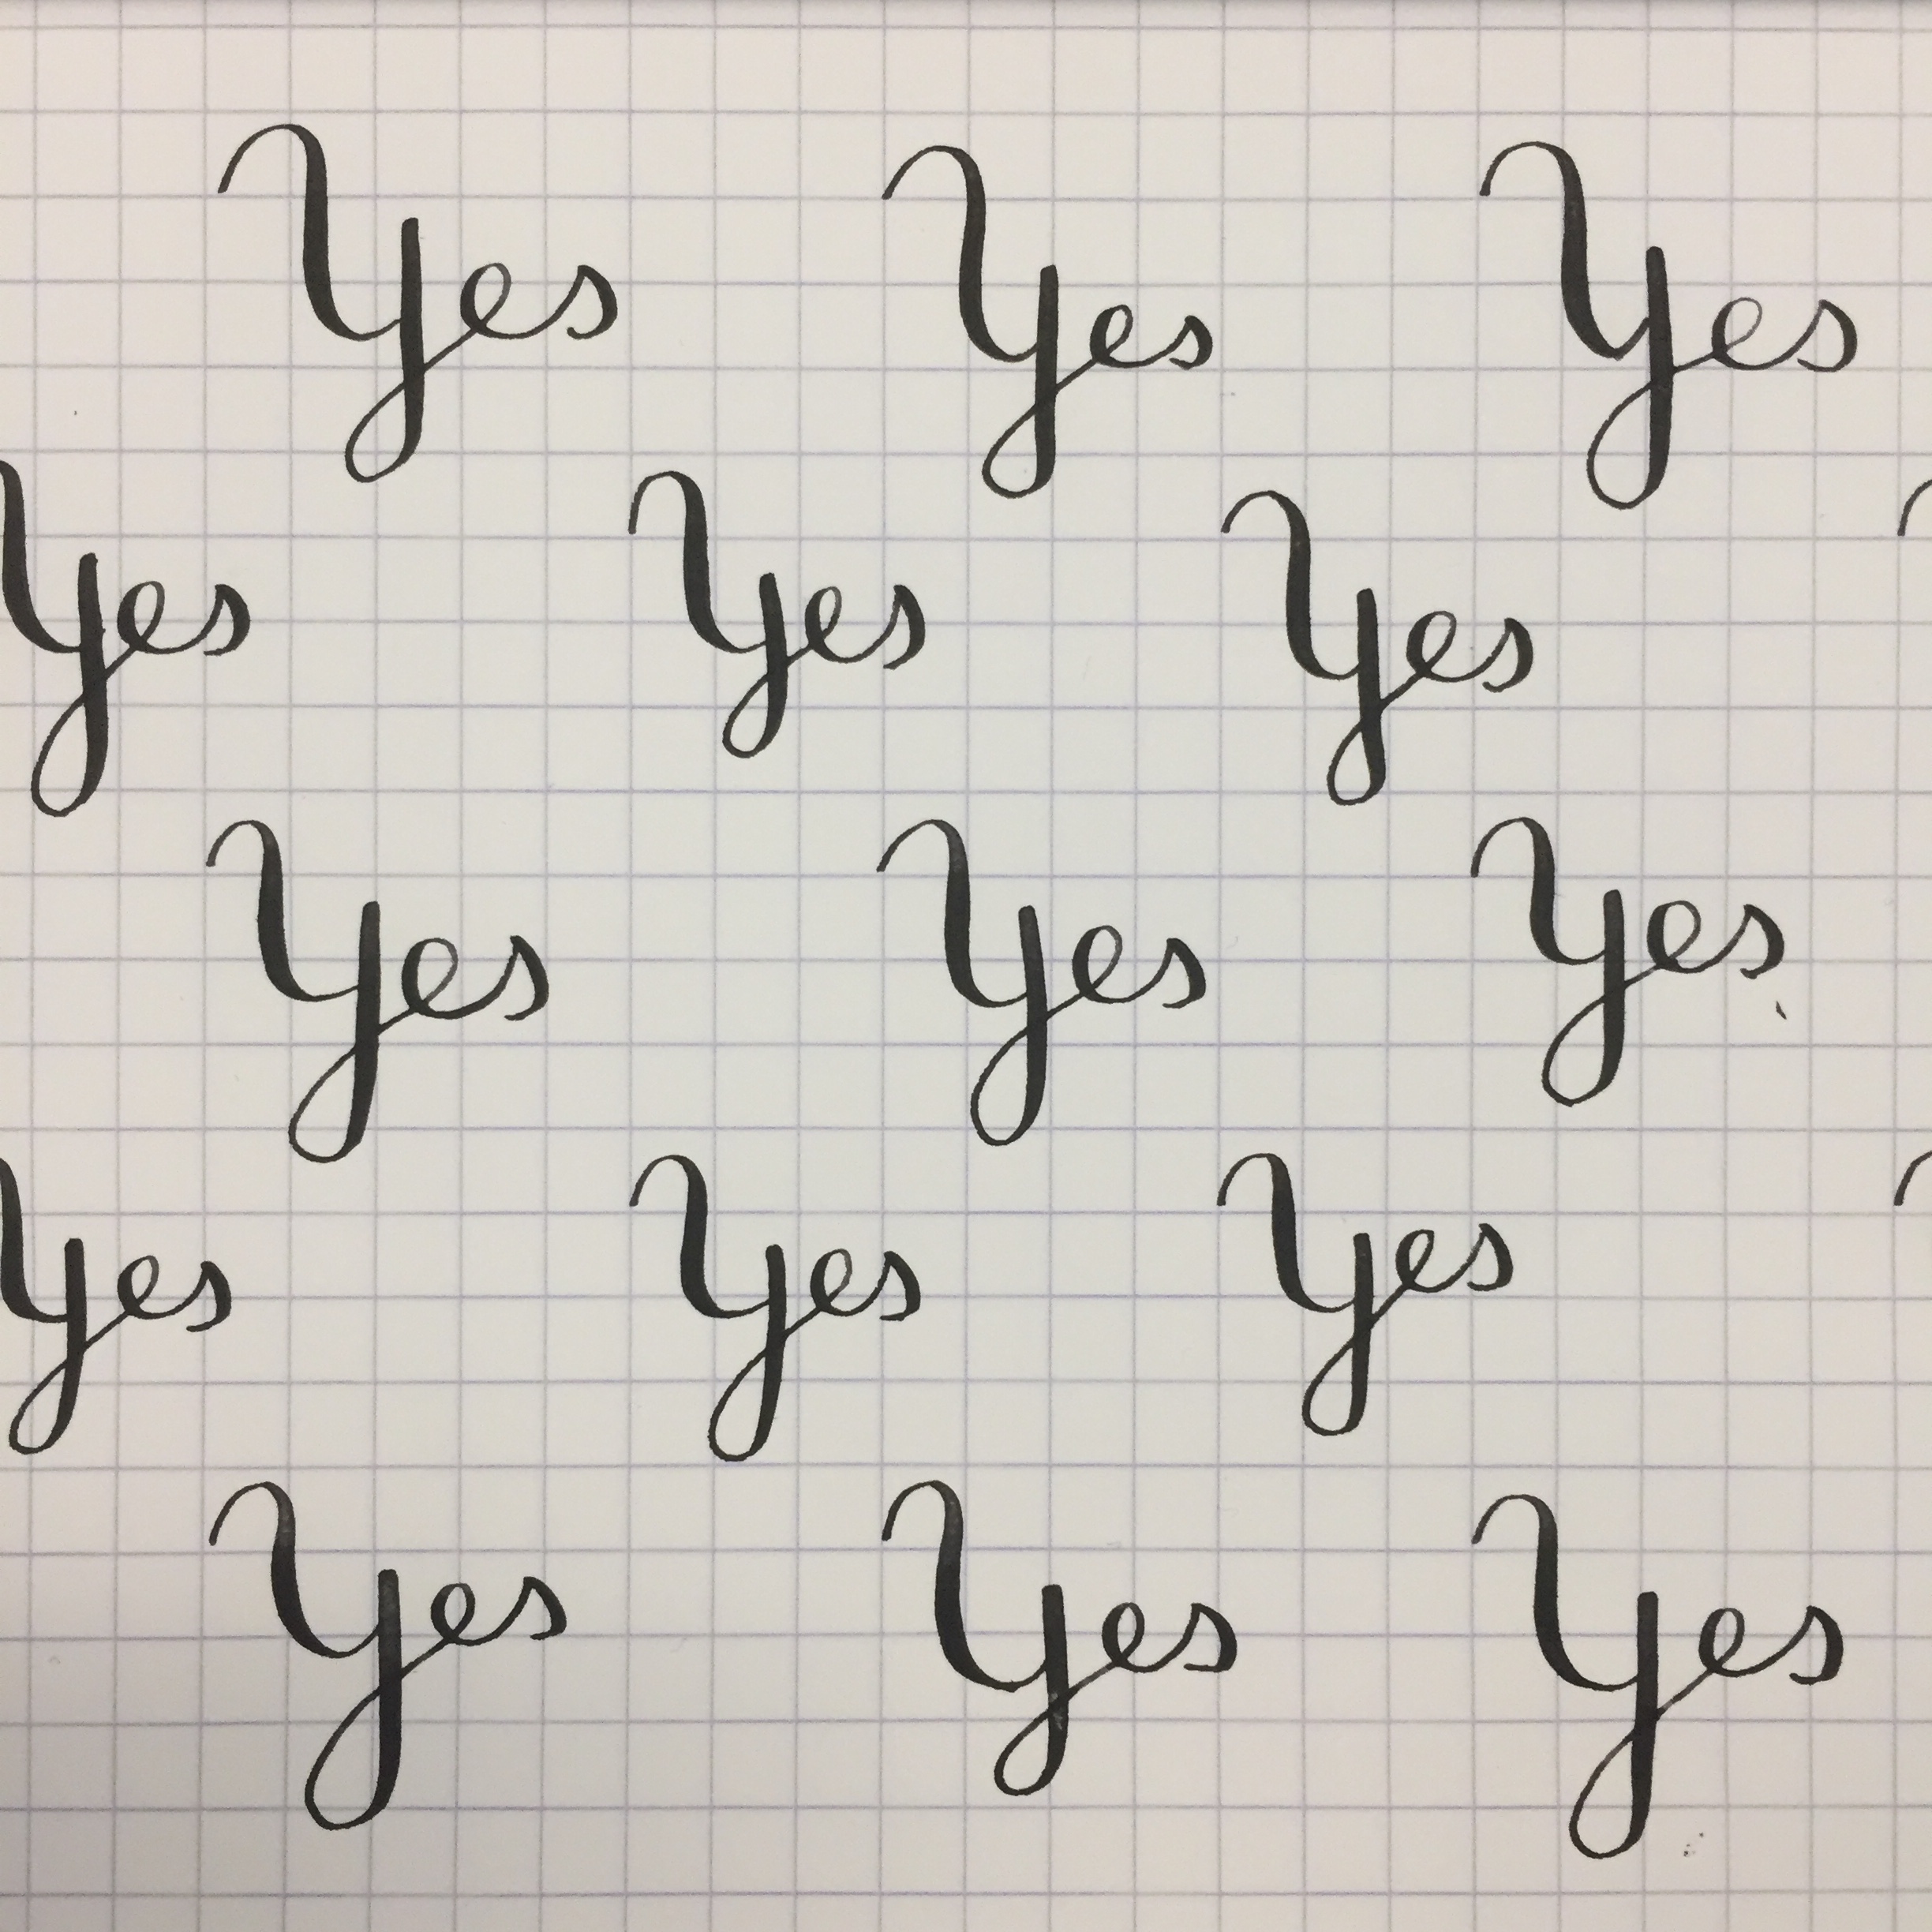 Yes Yes Yes
Yes Yes Yes
Yes Yes Yes
Yes Yes Yes
Yes Yes Yes